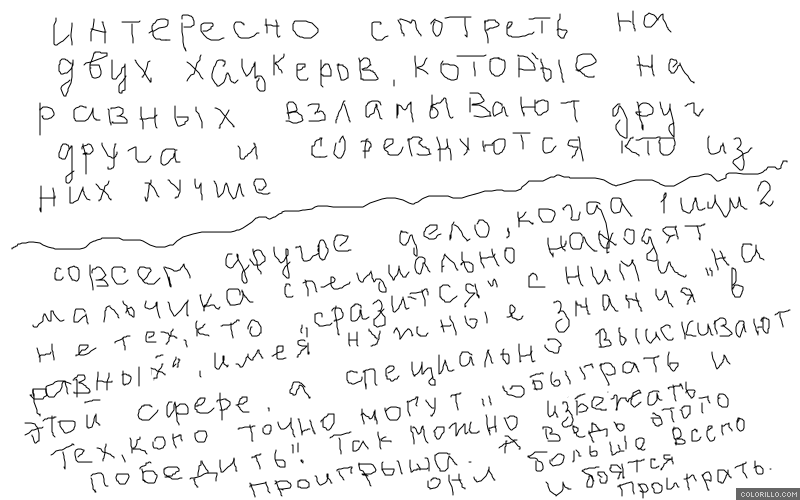 интересно смотреть на
двух хацкеров, которые на
равных взламывают друг
друга и соревнуются кто из
них лучше
совсем другое дело, когда 1 или 2
мальчика специально находят
не тех, кто „сразится" с ними „на
равных", имея нужные знания в
этой сфере, а специально выискивают
тех, кого точно могут „обыграть и
победить". Так можно избежать
проигрыша. А ведь этого
они больше всего
и боятся
проиграть.
COLORILLO.COM